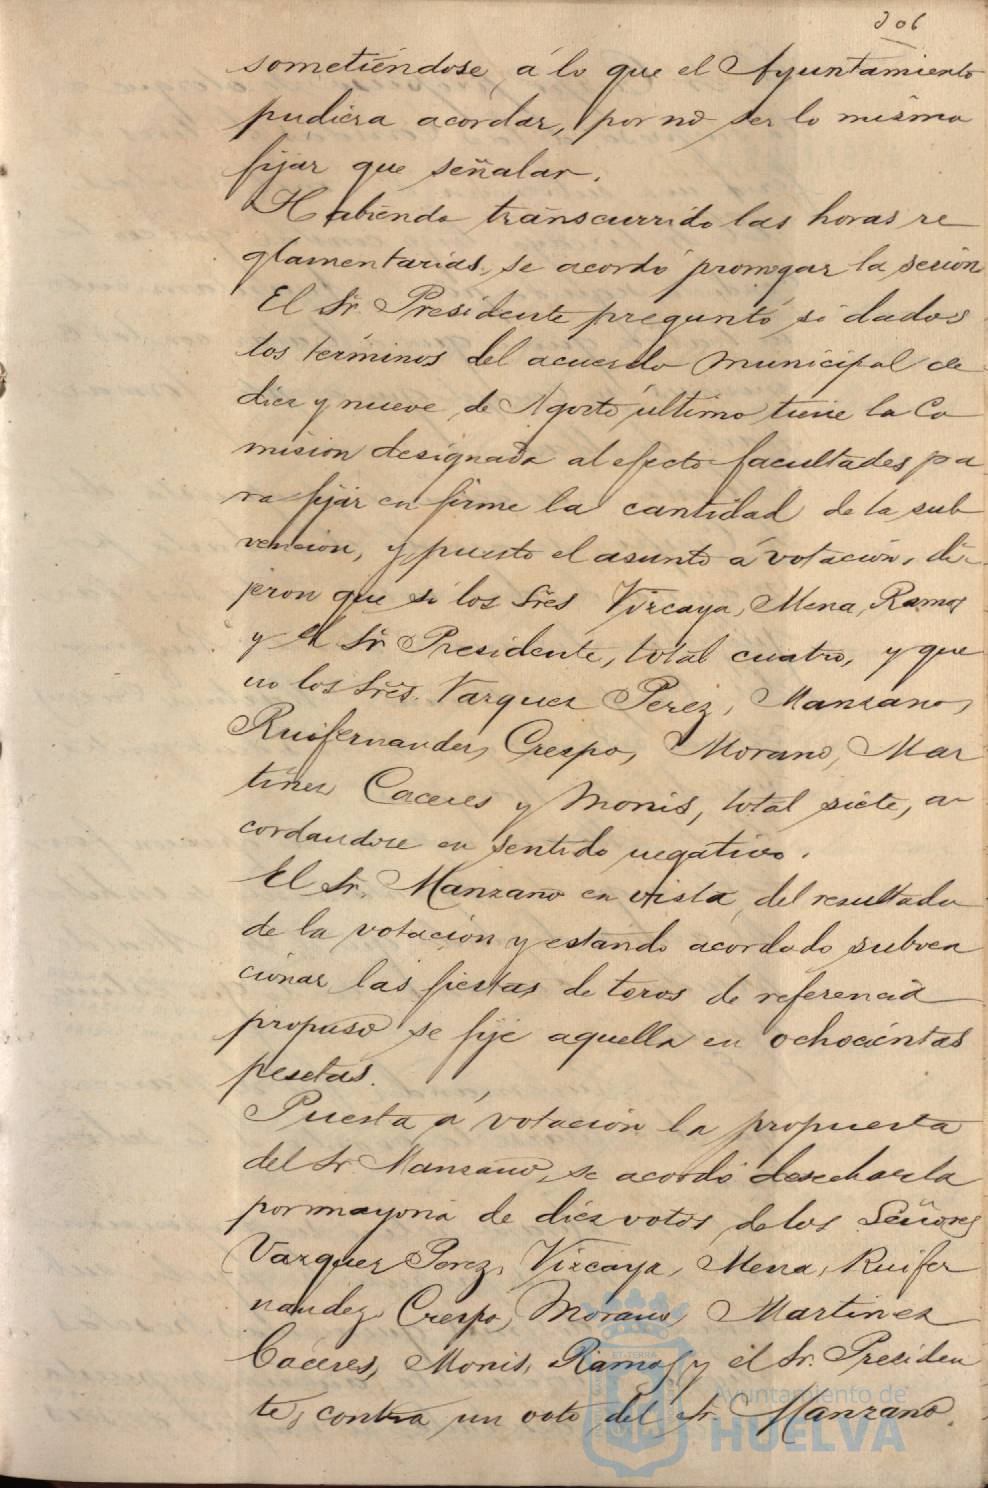 306
sometiéndose á lo que el Ayuntamiento
pudiera acordar, por no ser lo mismo
fijar que señalar.
Habiendo transcurrido las horas re
glamentarias, se acordó prorrogar la sesion
El Sr. Presidente preguntó si dados
los términos del acuerdo municipal de
diez y nueve de Agosto último tiene la Co
mision designada al efecto facultades pa
ra fijar en firme la cantidad de la sub
vencion, y puesto el asunto á votación, di-
jeron que si los Sres Vizcaya, Mena, Ramos
y el Sr. Presidente, total cuatro, y que
no los Sres. Vazquez Perez, Manzano,
Ruifernandez, Crespo, Morano, Mar
tinez Caceres y Monis, total siete, a-
cordandose en sentido negativo.
El Sr. Manzano en vista del resultado
de la votación y estando acordado subven
cionar las fiestas de toros de referencia
propuso se fije aquella en ochocientas
pesetas.
Puesta á votación la propuesta
del Sr. Manzano, se acordó desecharla
por mayoria de diez votos de los Señores
Vazquez Perez, Vizcaya, Mena, Ruifer
nandez Crespo, Morano, Martinez
Caceres, Monis, Ramos y el Sr. Presiden
te, contra un voto del Sr. Manzano.
Ayuntamiento de
HUELVA